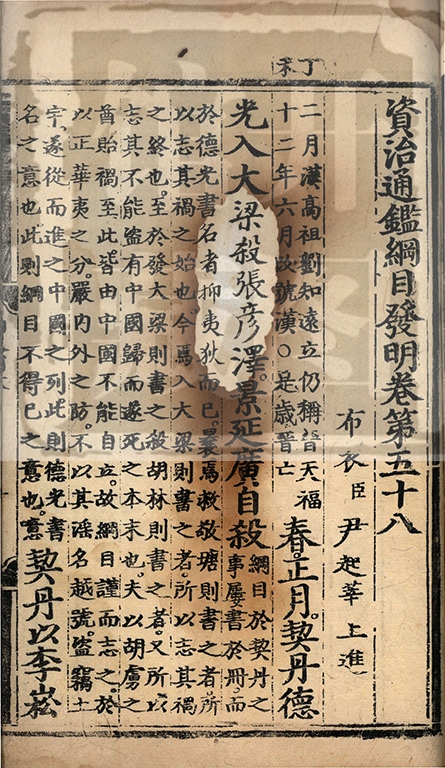 丁未
資治通鑑綱目發明卷第五十八
布衣臣尹起莘上進
二月漢高祖劉知遠立仍稱晉天福
十二年六月改號漢○是歲晉亡
春正月契丹德
光入大梁殺張彥澤景延廣自殺
綱目於契丹之
事屢書於冊而
於德光書名者抑夷狄而已曩焉救敬瑭則書之者所
以志其禍之始也今焉入大梁則書之者所以志其禍
之終也至於發大梁則書之殺胡林則書之者又所以
志其不能盜有中國歸而遂死之本末也夫以胡虜之
酋貽禍至此皆由中國不能自立故綱目謹而志之於
以正華夷之分嚴內外之防不以其淫名越號盜竊土
宇遂從而進之中國之列此則德光書
名之意也此則綱目不得已之意也噫
契丹以李崧